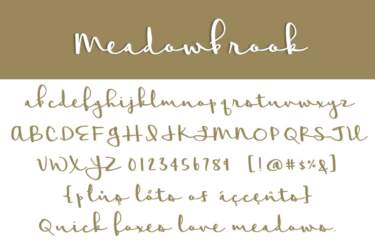 Meadowbrook
abcdefghijklmnopqrstuvwxyz
ABCDEFGHIJKLMNOPQRSTU
VWXYZ 0123456789 [!@#$%&]
{plüs lóts of åççents}
Quick foxes love meadows.